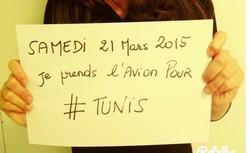 SAMEDI 21 Mars 2015
je prends l'Avion Pour
# TUNIS